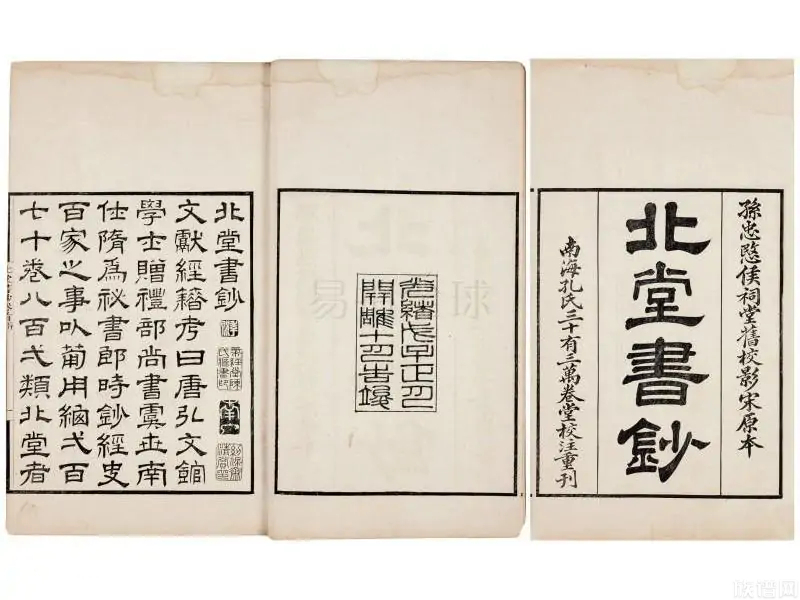 孫忠愍侯祠堂舊校影宋原本
北堂書鈔
南海孔氏三十有三萬卷堂校注重刊
光緒戊子正月
開雕十月告竣
北堂書鈔
文獻經籍考曰唐弘文館
學士贈禮部尚書虞世南
仕隋爲祕書郎時鈔經史
百家之事以葡用緫弌百
七十卷八百弌類北堂者
族譜网